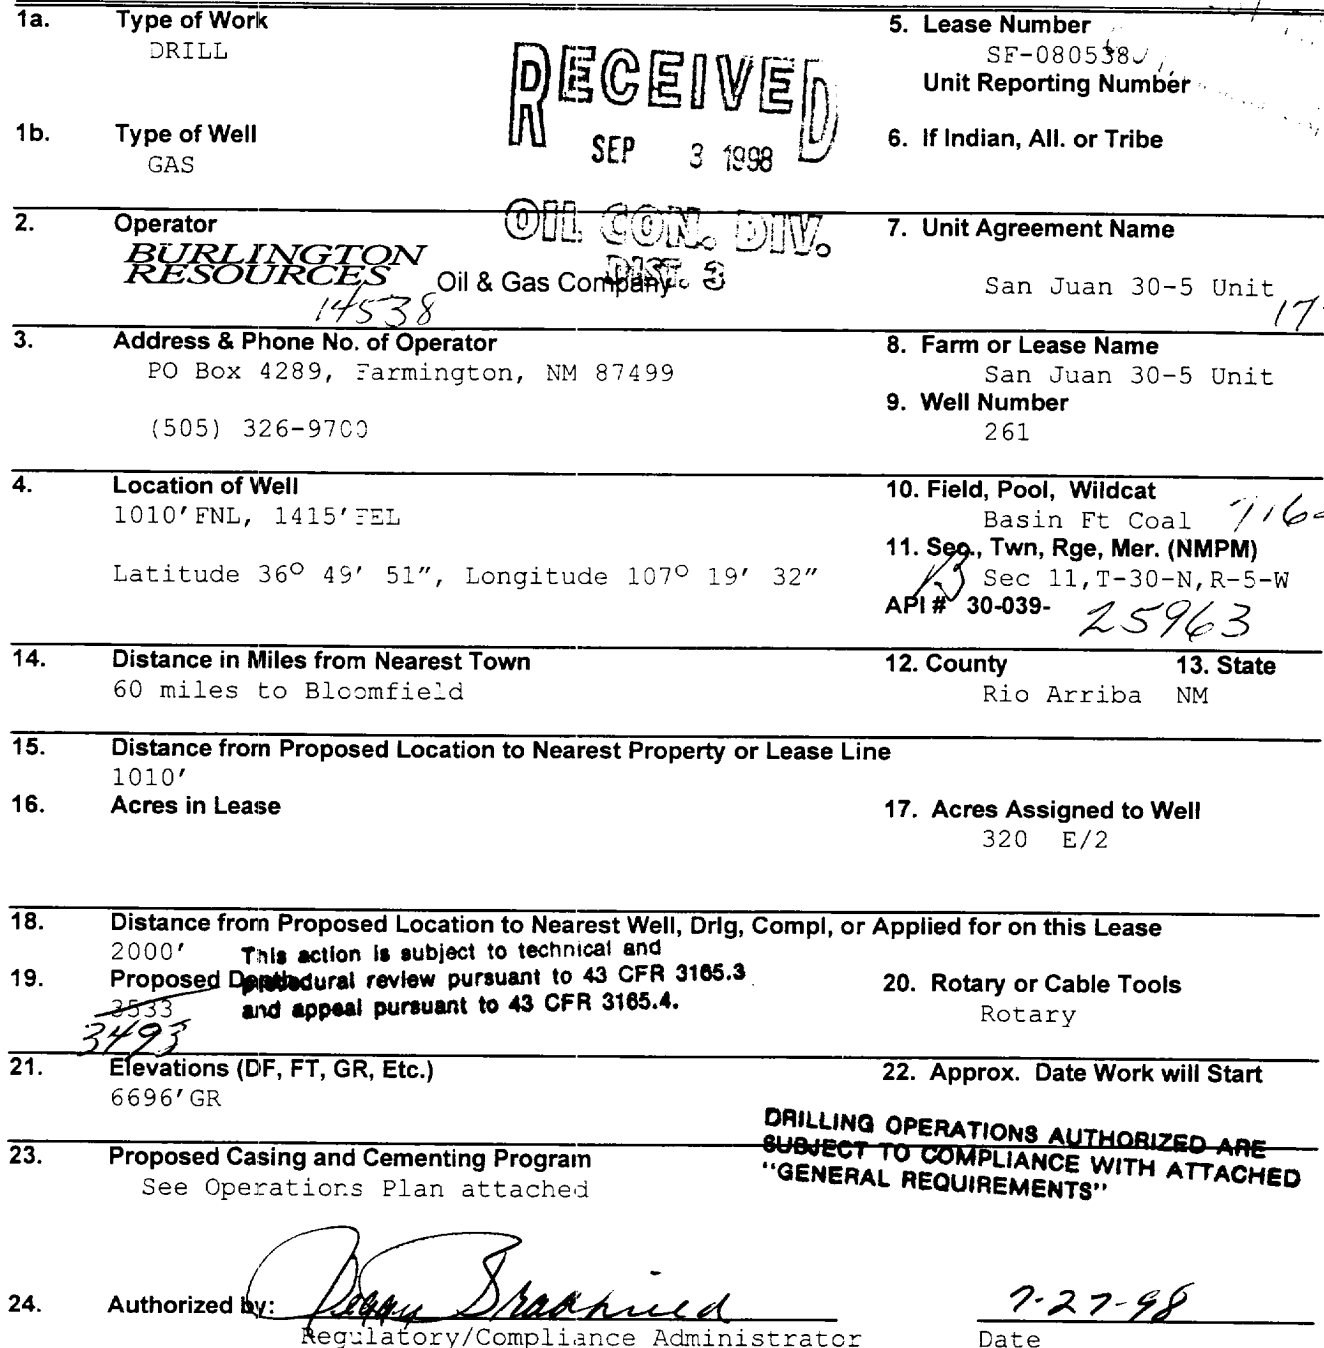 1a. Type of Work
DRILL
5. Lease Number
SF-080538
Unit Reporting Number
RECEIVED
SEP 3 1998
1b. Type of Well
GAS
6. If Indian, All. or Tribe
OIL CON. DIV.
DIST. 3
2. Operator
BURLINGTON
RESOURCES Oil & Gas Company
14538
7. Unit Agreement Name
San Juan 30-5 Unit
3. Address & Phone No. of Operator
PO Box 4289, Farmington, NM 87499
(505) 326-9700
8. Farm or Lease Name
San Juan 30-5 Unit
9. Well Number
261
4. Location of Well
1010'FNL, 1415'FEL
Latitude 36° 49' 51", Longitude 107° 19' 32"
10. Field, Pool, Wildcat
Basin Ft Coal
11. Sec., Twn, Rge, Mer. (NMPM)
B Sec 11,T-30-N,R-5-W
API # 30-039- 25963
14. Distance in Miles from Nearest Town
60 miles to Bloomfield
12. County 13. State
Rio Arriba NM
15. Distance from Proposed Location to Nearest Property or Lease Line
1010'
16. Acres in Lease
17. Acres Assigned to Well
320 E/2
18. Distance from Proposed Location to Nearest Well, Drlg, Compl, or Applied for on this Lease
2000'
This action is subject to technical and
procedural review pursuant to 43 CFR 3165.3
and appeal pursuant to 43 CFR 3165.4.
19. Proposed Depth
3533
3493
20. Rotary or Cable Tools
Rotary
21. Elevations (DF, FT, GR, Etc.)
6696'GR
22. Approx. Date Work will Start
DRILLING OPERATIONS AUTHORIZED ARE
SUBJECT TO COMPLIANCE WITH ATTACHED
"GENERAL REQUIREMENTS"
23. Proposed Casing and Cementing Program
See Operations Plan attached
24. Authorized by: Peggy Bradfield 7-27-98
Regulatory/Compliance Administrator Date